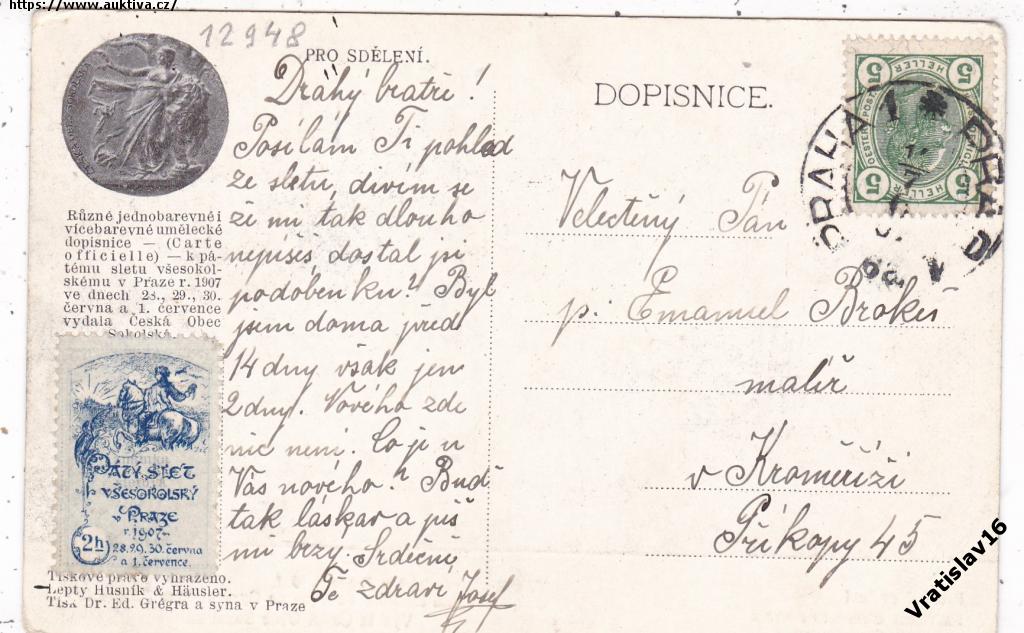 https://www.auktiva.cz/
12948
PRO SDĚLENÍ.
Dráhý bratře!
Posílám Ti pohled
ze sletu, divím se
že mi tak dlouho
nepíšeš dostal jsi
podobenku? Byl
jsem doma před
14 dny však jen
2 dny. Nového zde
nic není. Co je u
Vás nového? Buď
tak láskav a piš
mi brzy. Srdečně
Tě zdraví Josef
Různé jednobarevné i
vícebarevné umělecké
dopisnice — (Carte
officielle) — k pá-
tému sletu všesokol-
skému v Praze r. 1907
ve dnech 28., 29., 30.
června a 1. července
vydala Česká Obec
Sokolská.
PÁTÝ SLET
VŠESOKOLSKÝ
v PRAZE
r. 1907
28. 29. 30. června
a 1. července.
2h
Tiskové právo vyhrazeno.
Lepty Husník & Häusler.
Tisk Dr. Ed. Grégra a syna v Praze
DOPISNICE.
5 HELLER 5
5 HELLER 5
PRAHA 1 * PRAG
Velectěný Pán
p. Emanuel Brokeš
malíř
v Kroměříži
Příkopy 45
Vratislav16